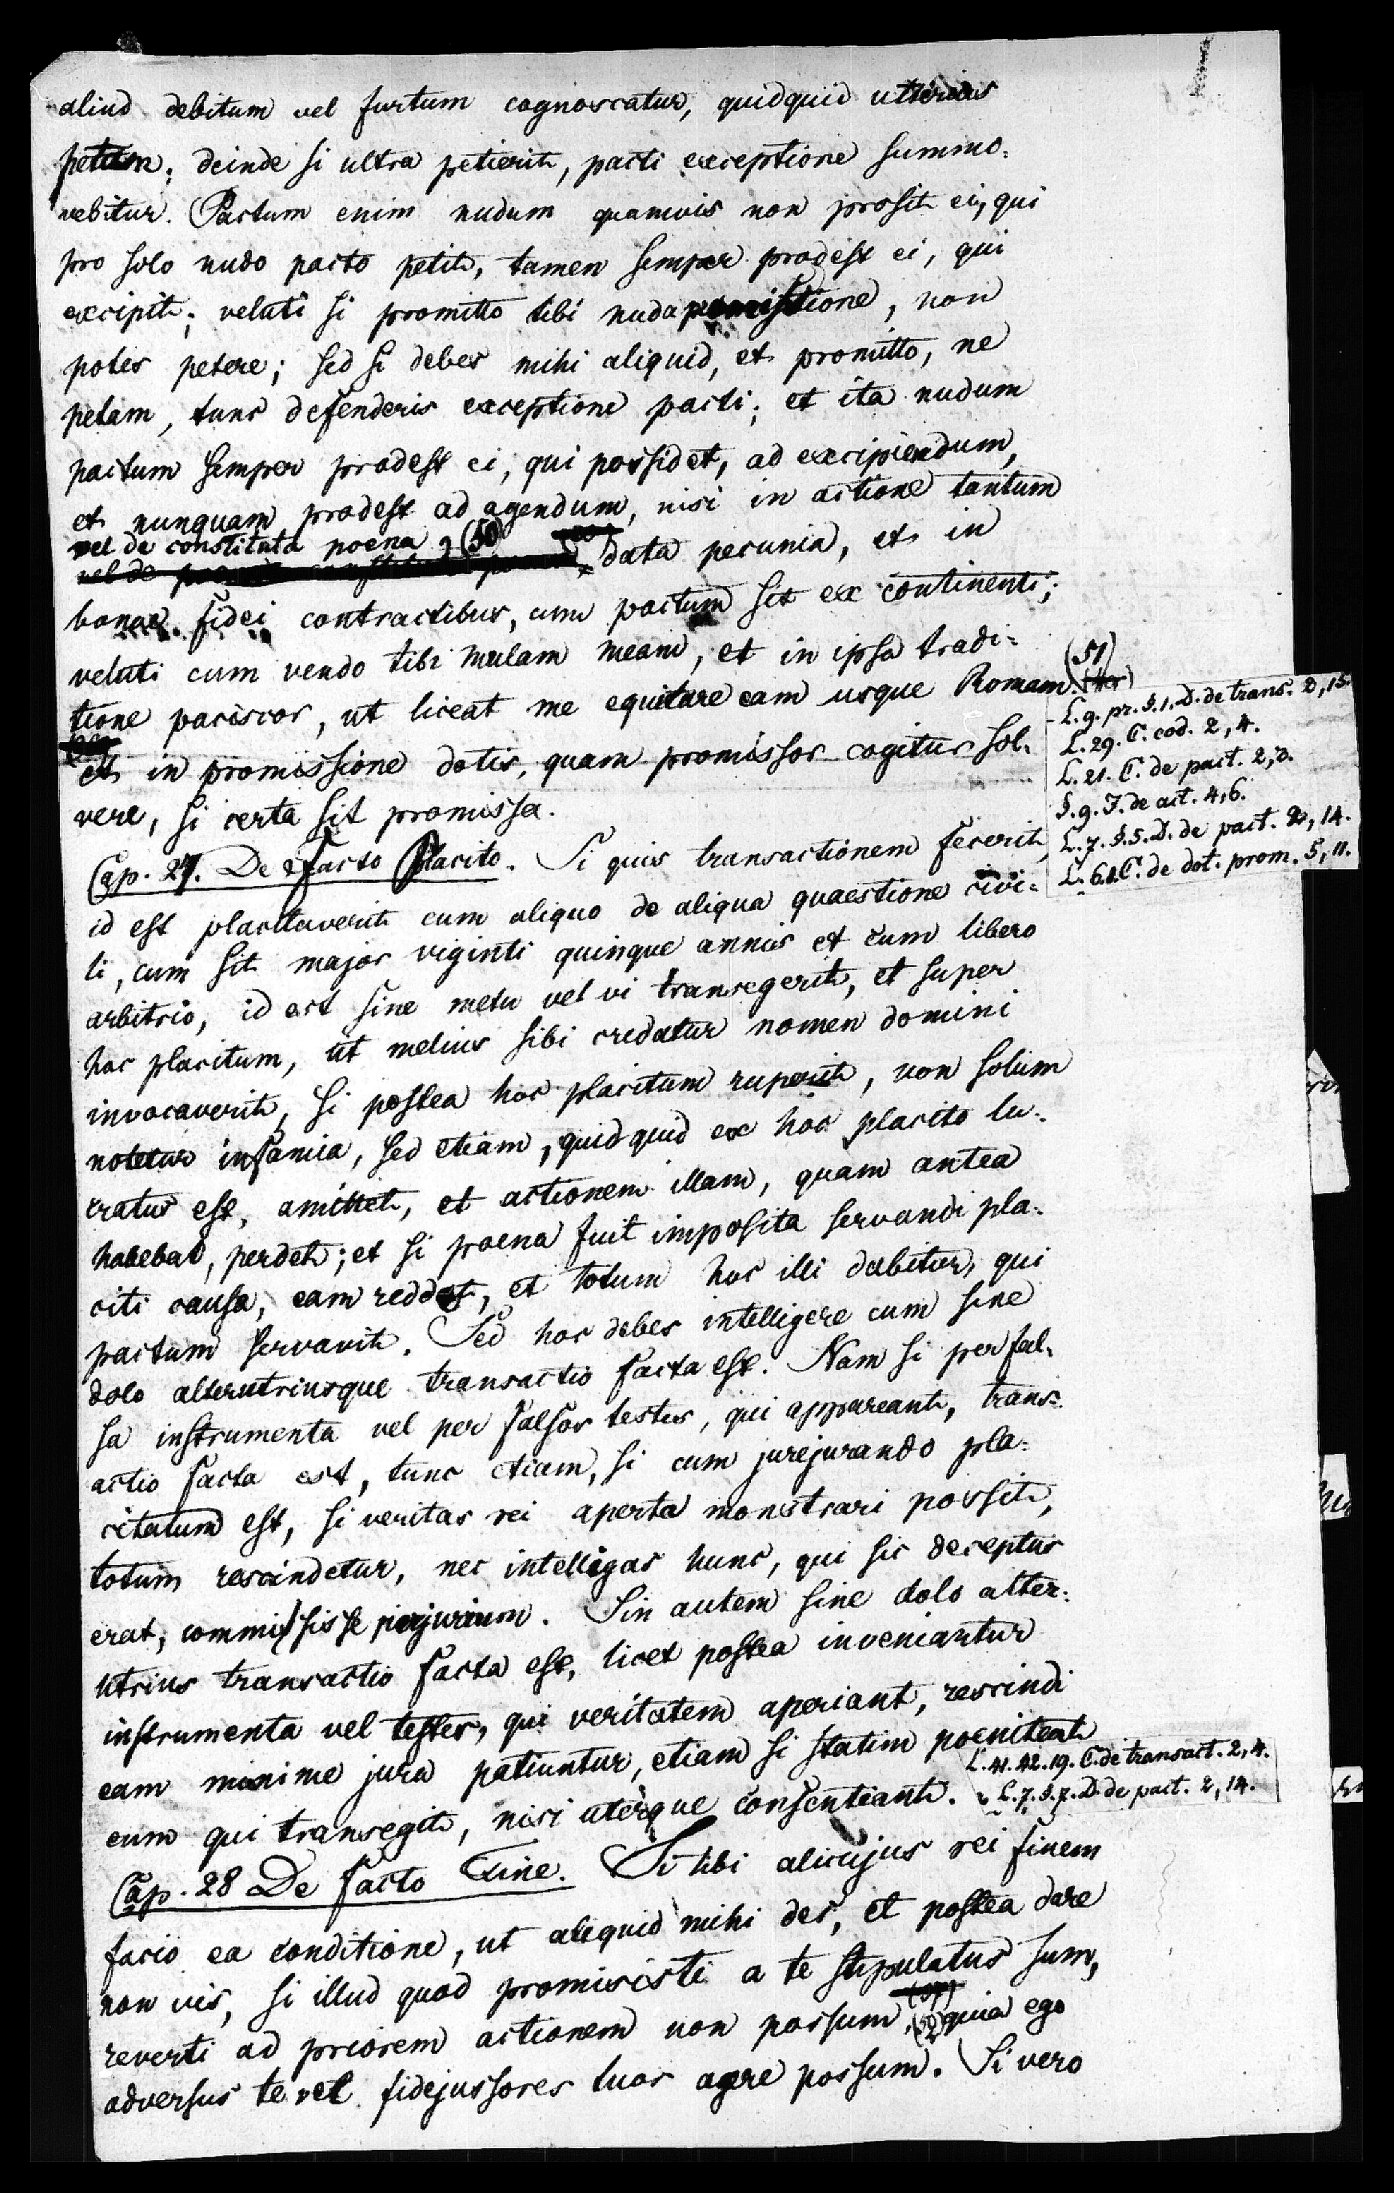 aliud debitum vel furtum cognoscatur, quidquid ulterius
petitum; deinde si ultra petierit, pacti exceptione summo-
vebitur. Pactum enim nudum quamvis non prosit ei, qui
pro solo nudo pacto petit, tamen semper prodest ei, qui
excipit; veluti si promitto tibi nuda promissione, non
potes petere; sed si debes mihi aliquid, et promitto, ne
petam, tunc defenderis exceptione pacti; et ita nudum
pactum semper prodest ei, qui possidet, ad excipiendum,
et nunquam prodest ad agendum, nisi in actione tantum
vel de constituta poena, (50)
data pecunia, et in
bonae fidei contractibus, cum pactum sit ex continenti;
veluti cum vendo tibi mulam meam, et in ipsa tradi-
tione paciscor, ut liceat me equitare eam usque Romam. (51)
et in promissione dotis, quam promissor cogitur sol-
vere, si certa sit promissa.
L. 9. pr. §. 1. D. de trans. 2, 15.
L. 29. C. eod. 2, 4.
L. 21. C. de pact. 2, 3.
§. 9. I. de act. 4, 6.
L. 7. §. 5. D. de pact. 2, 14.
L. 6. C. de dot. prom. 5, 11.
Cap. 27. De Facto Placito. Si quis transactionem fecerit,
id est placitaverit cum aliquo de aliqua quaestione civi-
li, cum sit major viginti quinque annis et cum libero
arbitrio, id est sine metu vel vi transegerit, et super
hoc placitum, ut melius sibi credatur nomen domini
invocaverit, si postea hoc placitum ruperit, non solum
notetur infamia, sed etiam, quidquid ex hoc placito lu-
cratus est, amittet, et actionem illam, quam antea
habebat, perdet; et si poena fuit imposita servandi pla-
citi causa, eam reddet, et totum hoc illi dabitur, qui
pactum servavit. Sed hoc debes intelligere cum sine
dolo alterutriusque transactio facta est. Nam si per fal-
sa instrumenta vel per falsos testes, qui appareant, trans-
actio facta est, tunc etiam, si cum jurejurando pla-
citatum est, si veritas rei aperta monstrari possit,
totum rescindetur, nec intelligas hunc, qui sic deceptus
erat, commisisse perjurium. Sin autem sine dolo alter-
utrius transactio facta est, licet postea inveniantur
instrumenta vel testes, qui veritatem aperiant, rescindi
eam minime jura patiuntur, etiam si statim poeniteat
eum qui transegit, nisi uterque consentiant.
L. 41. 42. 19. C. de transact. 2, 4.
L. 7. §. 7. D. de pact. 2, 14.
Cap. 28 De Facto Fine. Si tibi alicujus rei finem
facio ea conditione, ut aliquid mihi des, et postea dare
non vis, si illud quod promisisti a te stipulatus sum,
reverti ad priorem actionem non possum, (52) quia ego
adversus te vel fidejussores tuos agere possum. Si vero